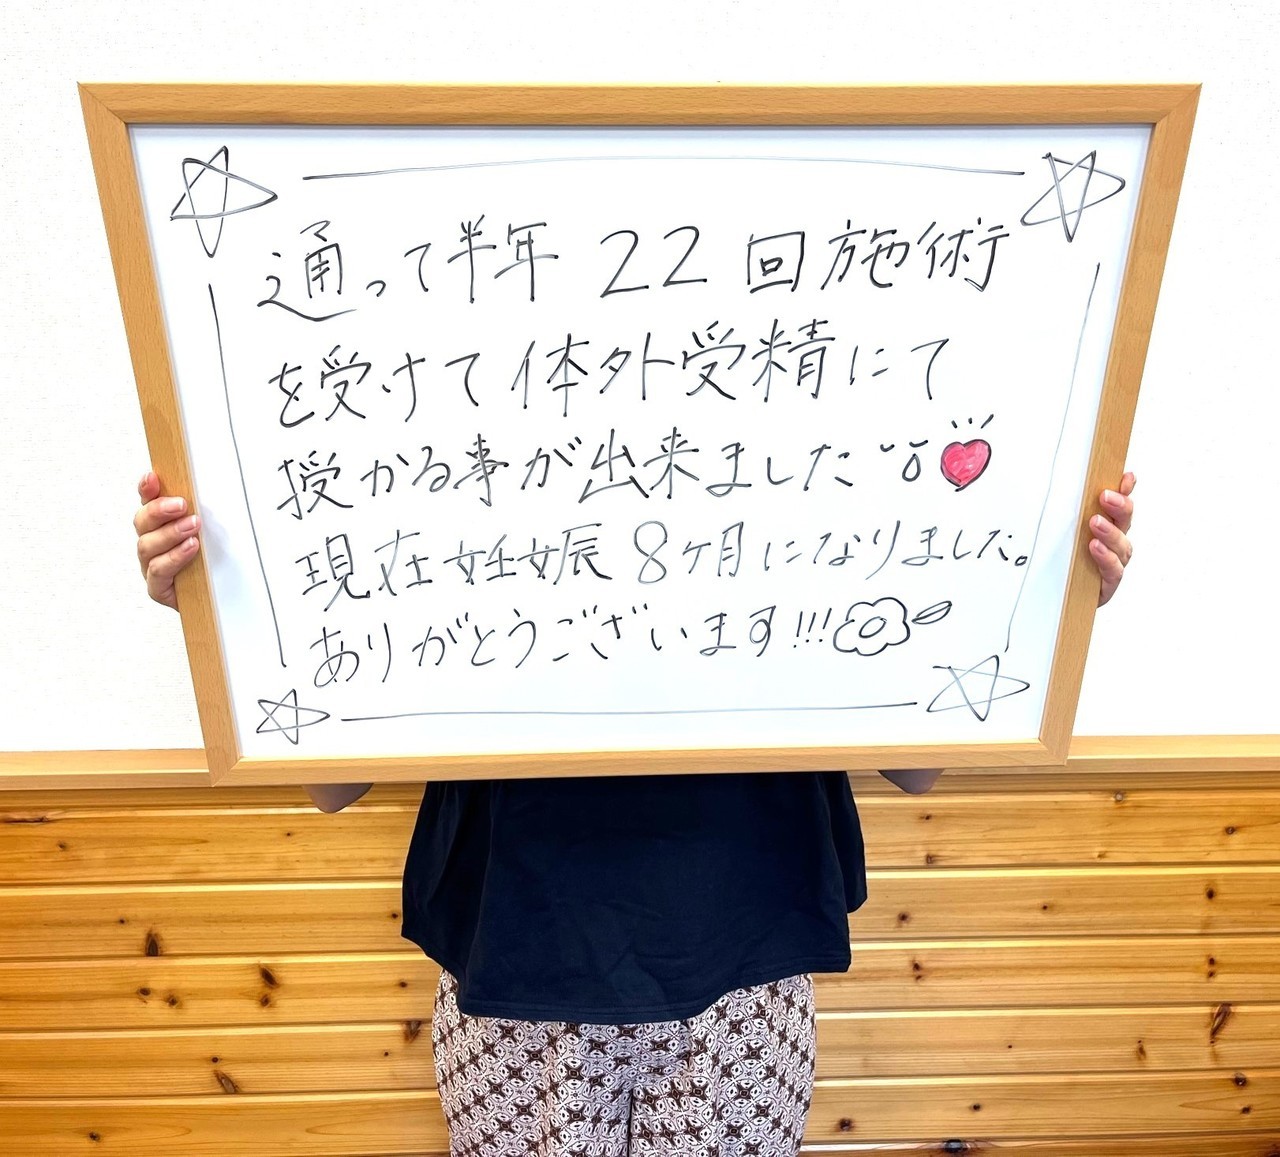 通って半年 22回施術
を受けて体外受精にて
授かる事が出来ました
現在妊娠8ヶ月になりました。
ありがとうございます!!!